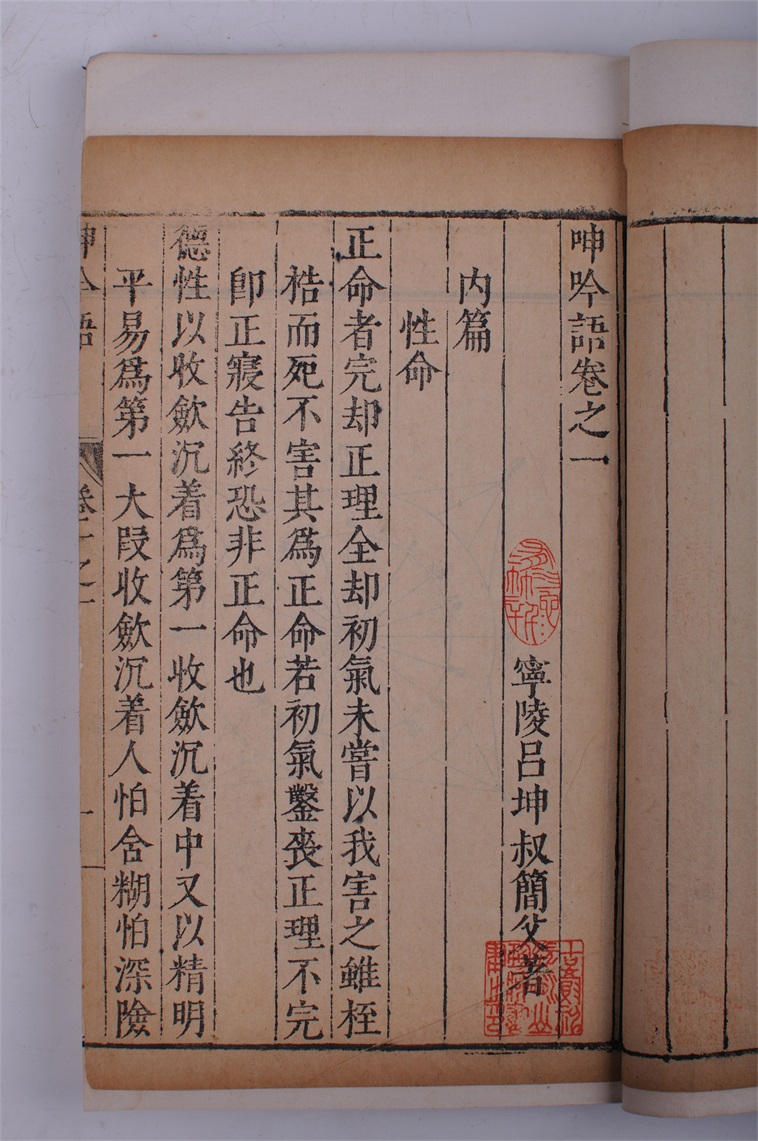 呻吟語卷之一
寧陵呂坤叔簡父著
内篇
性命
正命者完却正理全却初氣未嘗以我害之雖桎
梏而死不害其爲正命若初氣鑿喪正理不完
即正寢告終恐非正命也
德性以收斂沉着爲第一收斂沉着中又以精明
平易爲第一大段收斂沉着人怕含糊怕深險
呻吟語